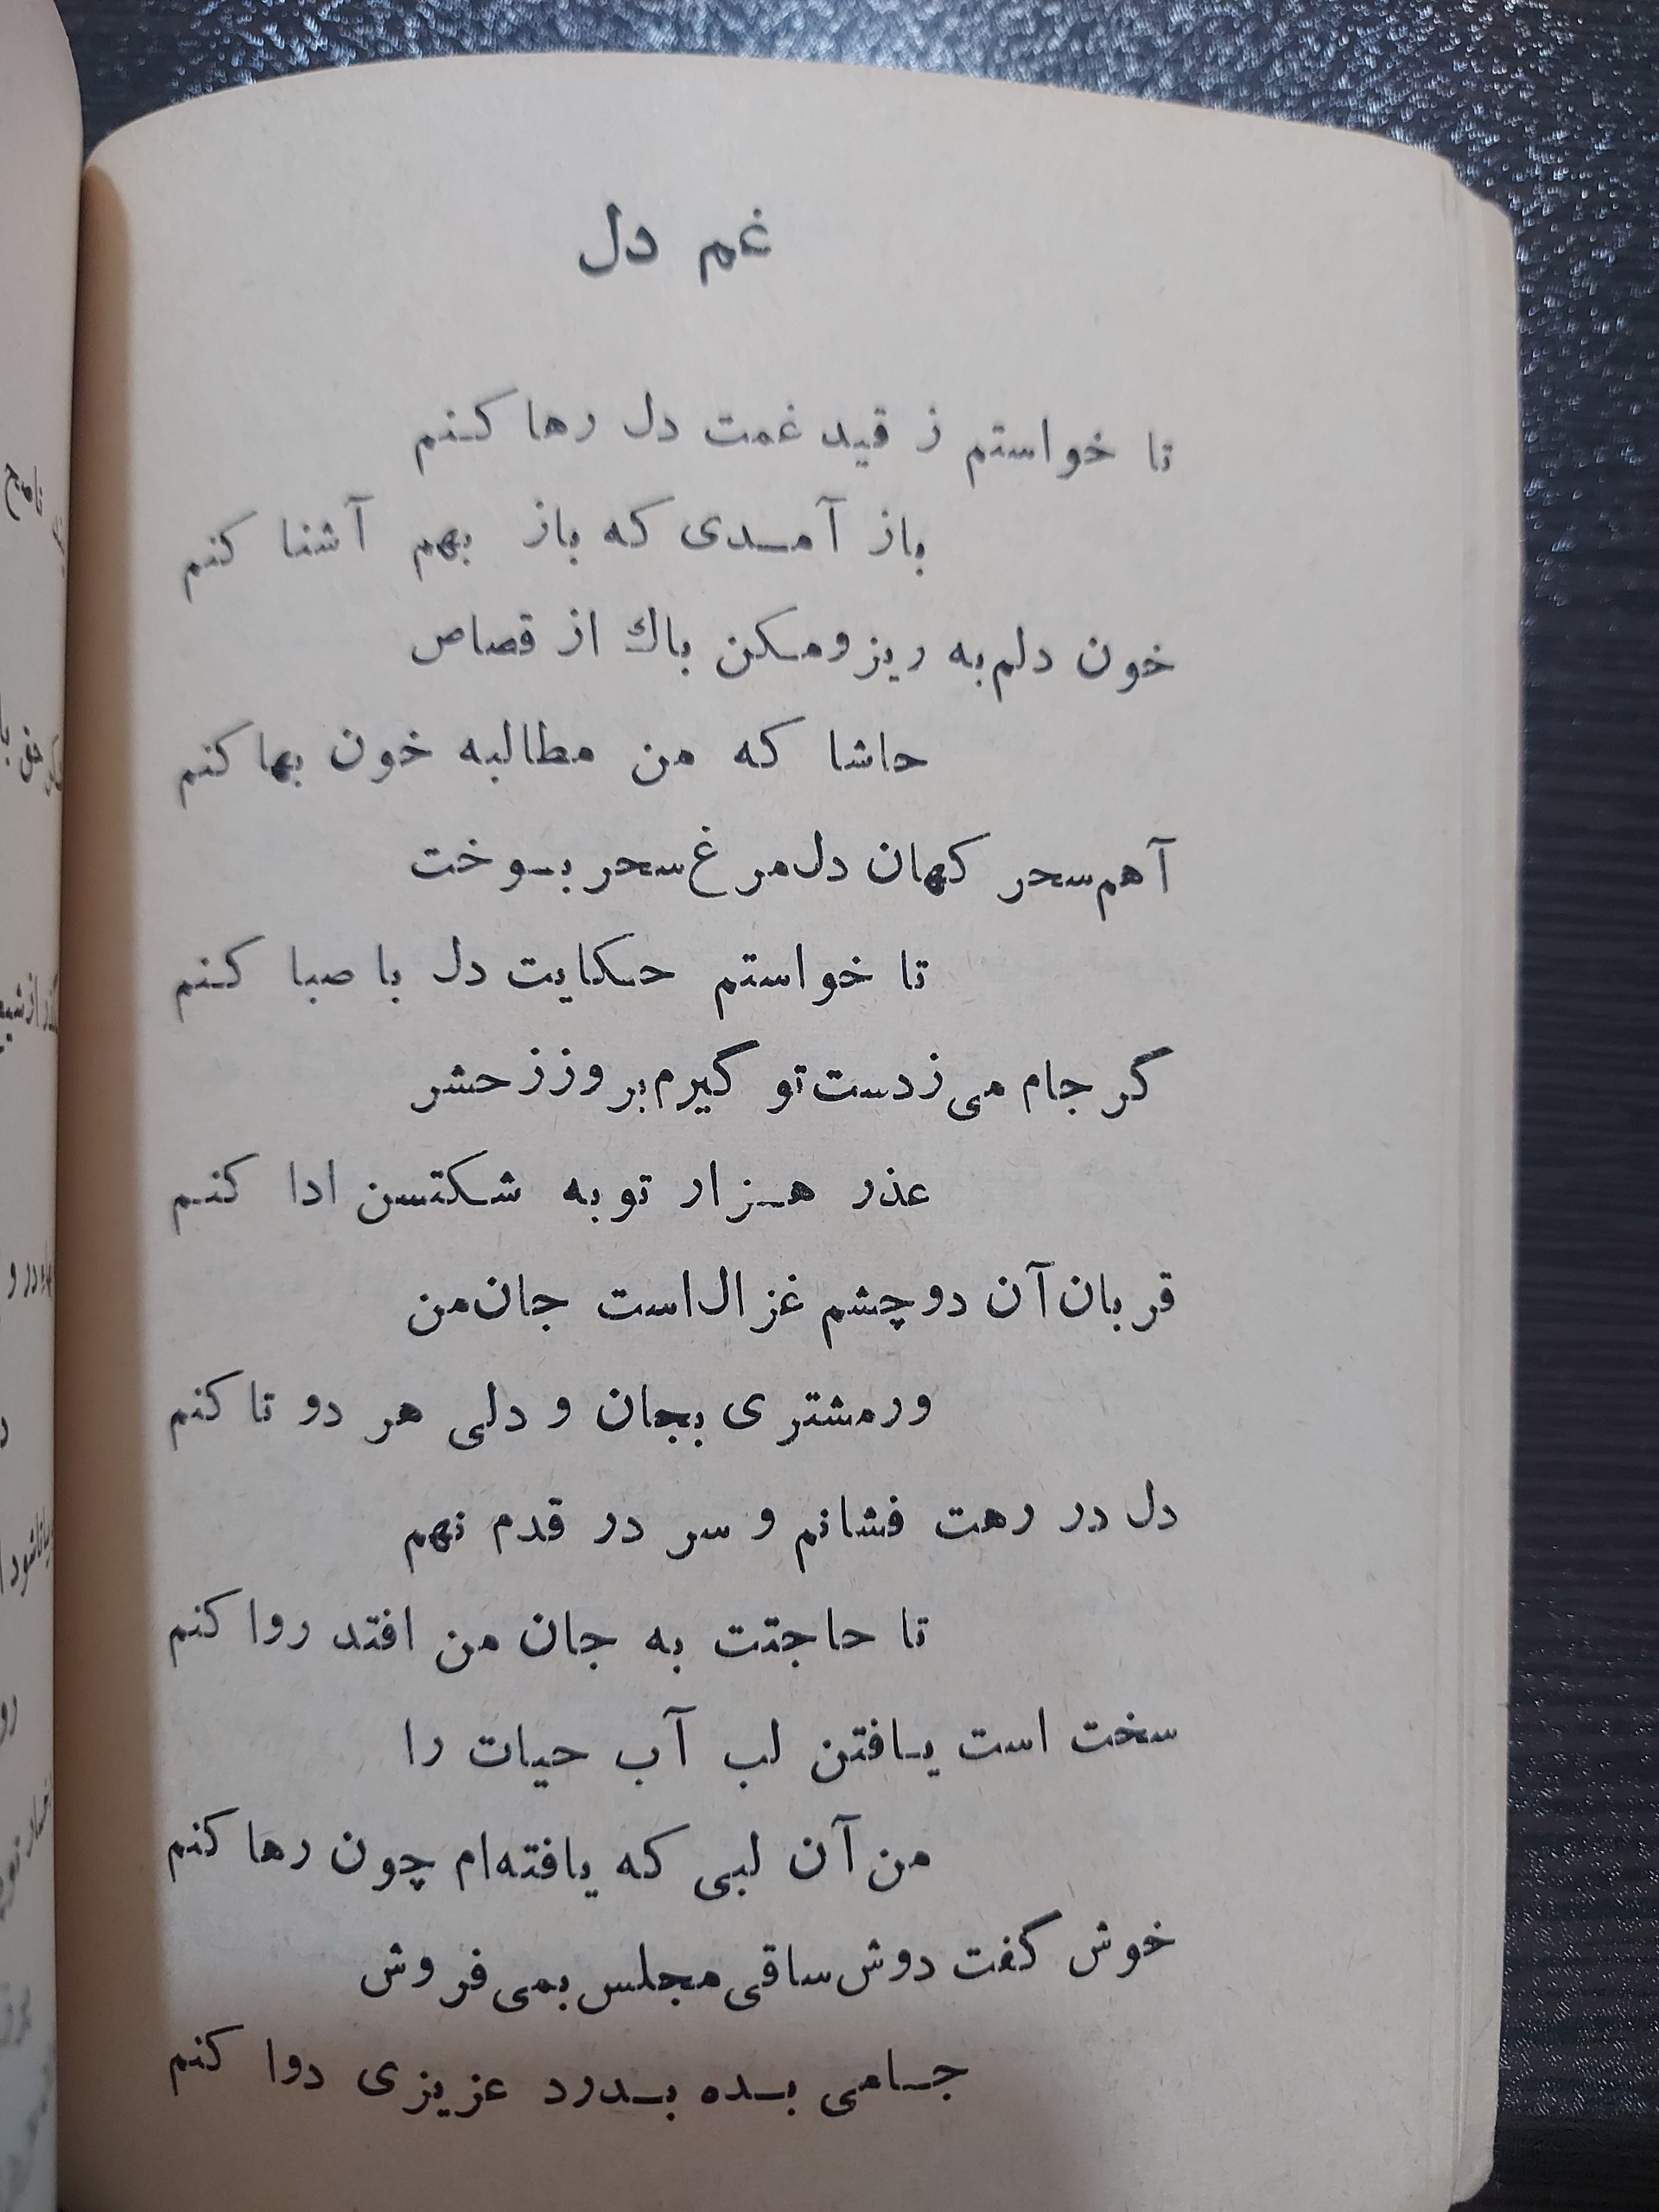 غم دل
تا خواستم ز قید غمت دل رها کنم
باز آمدی که باز بهم آشنا کنم
خون دلم به ریز ومکن باك از قصاص
حاشا که من مطالبه خون بها کنم
آهم سحر کهان دل مرغ سحر بسوخت
تا خواستم حکایت دل با صبا کنم
گر جام می ز دست تو گیرم بروزز حشر
عذر هزار توبه شکتسن ادا کنم
قربان آن دوچشم غزال است جان من
ورمشتری بجان و دلی هر دو تا کنم
دل در رهت فشانم و سر در قدم نهم
تا حاجتت به جان من افتد روا کنم
سخت است یافتن لب آب حیات را
من آن لبی که یافته‌ام چون رها کنم
خوش گفت دوش ساقی مجلس بمی فروش
جامی بده بدرد عزیزی دوا کنم